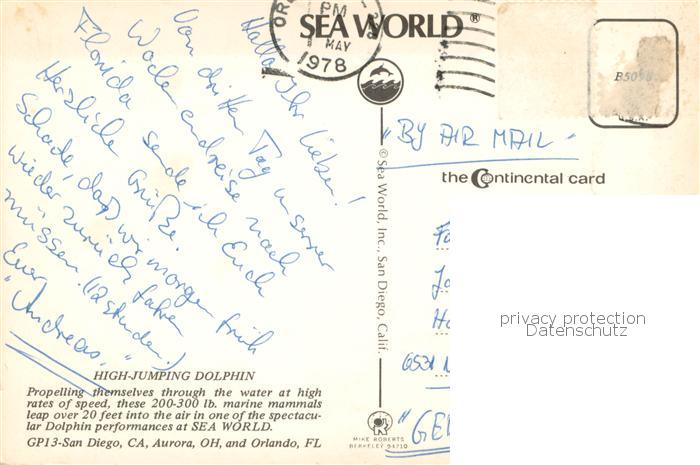 Hallo Ihr Lieben!
Von dritten Tag unserer
Wochenendreise nach
Florida sende ich Euch
Herzliche Grüße.
Schade, daß wir morgen früh
wieder zurück fahren
müssen. (12 Stunden.)
Euer
"Andreas."
HIGH-JUMPING DOLPHIN
Propelling themselves through the water at high
rates of speed, these 200-300 lb. marine mammals
leap over 20 feet into the air in one of the spectacu-
lar Dolphin performances at SEA WORLD.
GP13-San Diego, CA, Aurora, OH, and Orlando, FL
SEA WORLD®
OR
PM
MAY
1978
© Sea World, Inc., San Diego, Calif.
MIKE ROBERTS
BERKELEY 94710
B5098
U.S.A.
"BY AIR MAIL"
the Continental card
Fa
Ja
Ha
6531
"GE
privacy protection
Datenschutz